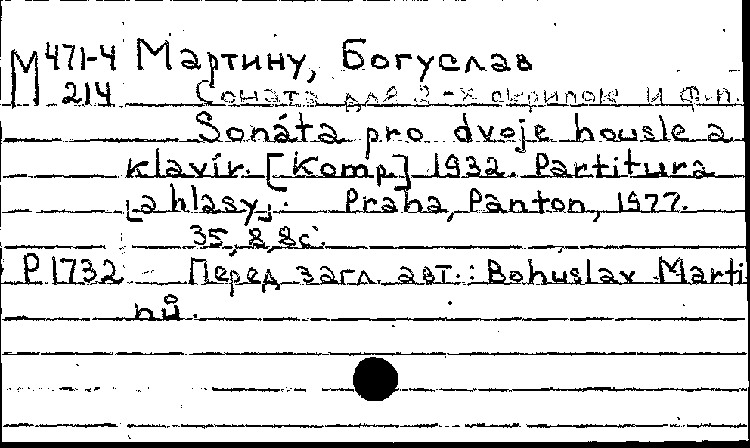 М 471-4 Мартину, Богуслав
214 Соната для 2-х скрипок и ф.п.
Sonáta pro dvoje housle a
klavír. [Komp.] 1932. Partitura
[a hlasy]. Praha, Panton, 1977.
35, 8, 8 с.
Р 1732 - Перед загл. авт.: Bohuslav Marti
nů.